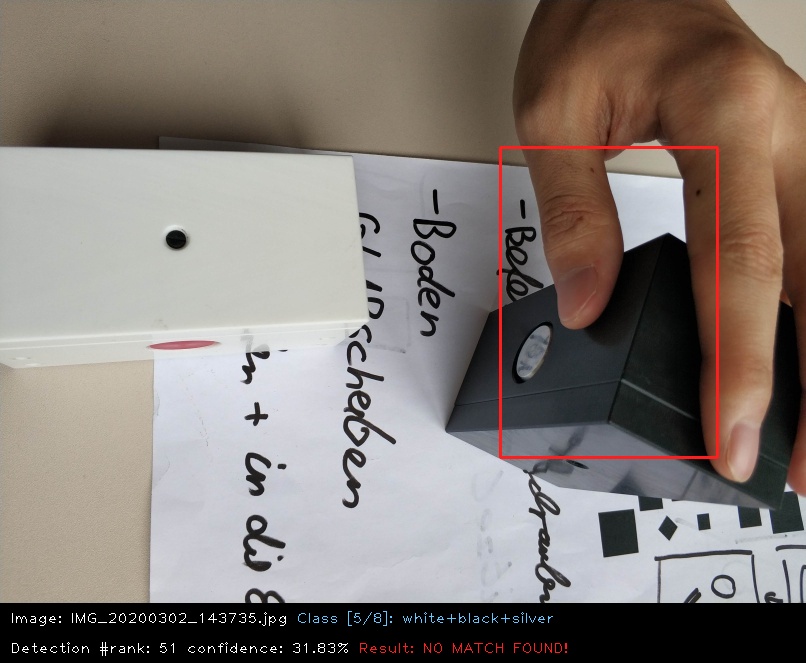 -Befe
-Boden
scheiben
+ in die
Image: IMG_20200302_143735.jpg Class [5/8]: white+black+silver
Detection #rank: 51 confidence: 31.83% Result: NO MATCH FOUND!